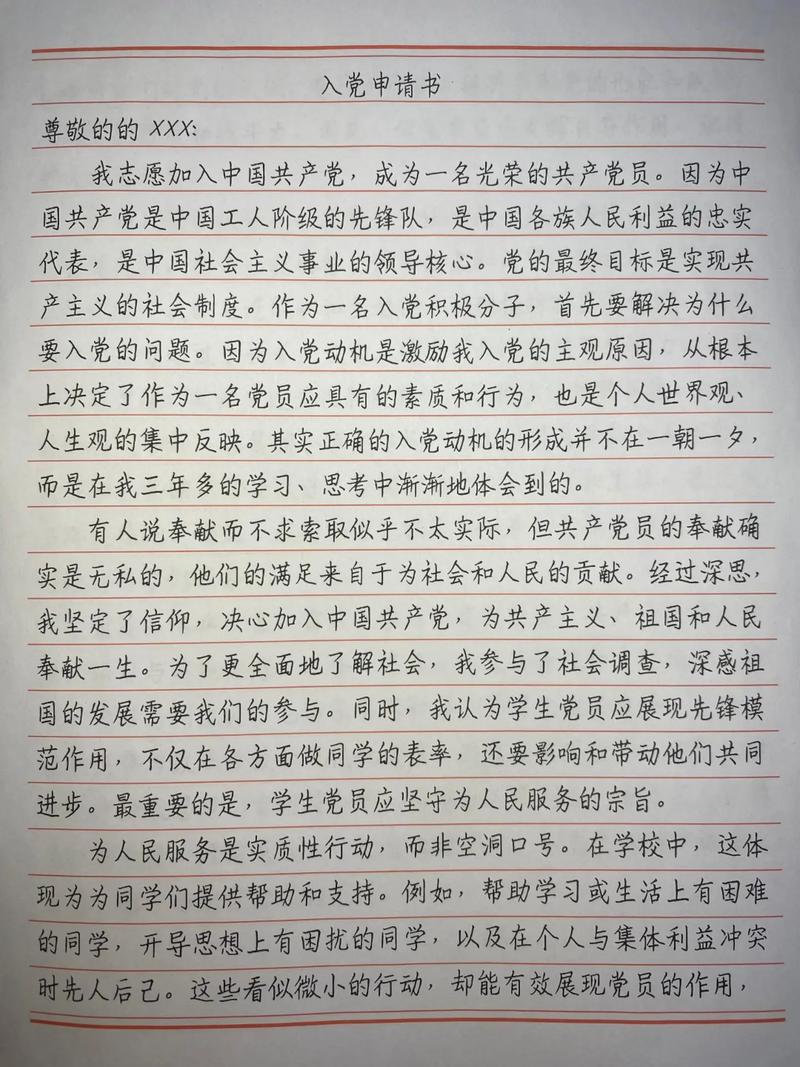 入党申请书
尊敬的的 XXX:
我志愿加入中国共产党，成为一名光荣的共产党员。因为中
国共产党是中国工人阶级的先锋队，是中国各族人民利益的忠实
代表，是中国社会主义事业的领导核心。党的最终目标是实现共
产主义的社会制度。作为一名入党积极分子，首先要解决为什么
要入党的问题。因为入党动机是激励我入党的主观原因，从根本
上决定了作为一名党员应具有的素质和行为，也是个人世界观、
人生观的集中反映。其实正确的入党动机的形成并不在一朝一夕，
而是在我三年多的学习、思考中渐渐地体会到的。
有人说奉献而不求索取似乎不太实际，但共产党员的奉献确
实是无私的，他们的满足来自于为社会和人民的贡献。经过深思，
我坚定了信仰，决心加入中国共产党，为共产主义、祖国和人民
奉献一生。为了更全面地了解社会，我参与了社会调查，深感祖
国的发展需要我们的参与。同时，我认为学生党员应展现先锋模
范作用，不仅在各方面做同学的表率，还要影响和带动他们共同
进步。最重要的是，学生党员应坚守为人民服务的宗旨。
为人民服务是实质性行动，而非空洞口号。在学校中，这体
现为为同学们提供帮助和支持。例如，帮助学习或生活上有困难
的同学，开导思想上有困扰的同学，以及在个人与集体利益冲突
时先人后己。这些看似微小的行动，却能有效展现党员的作用，